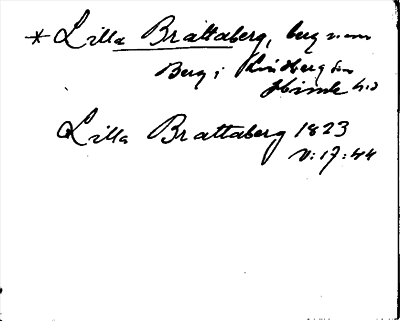 * Lilla Brattaberg, berg norr
Berg i Lindberg sn
Himle hd
Lilla Brattaberg 1823
V:17:44